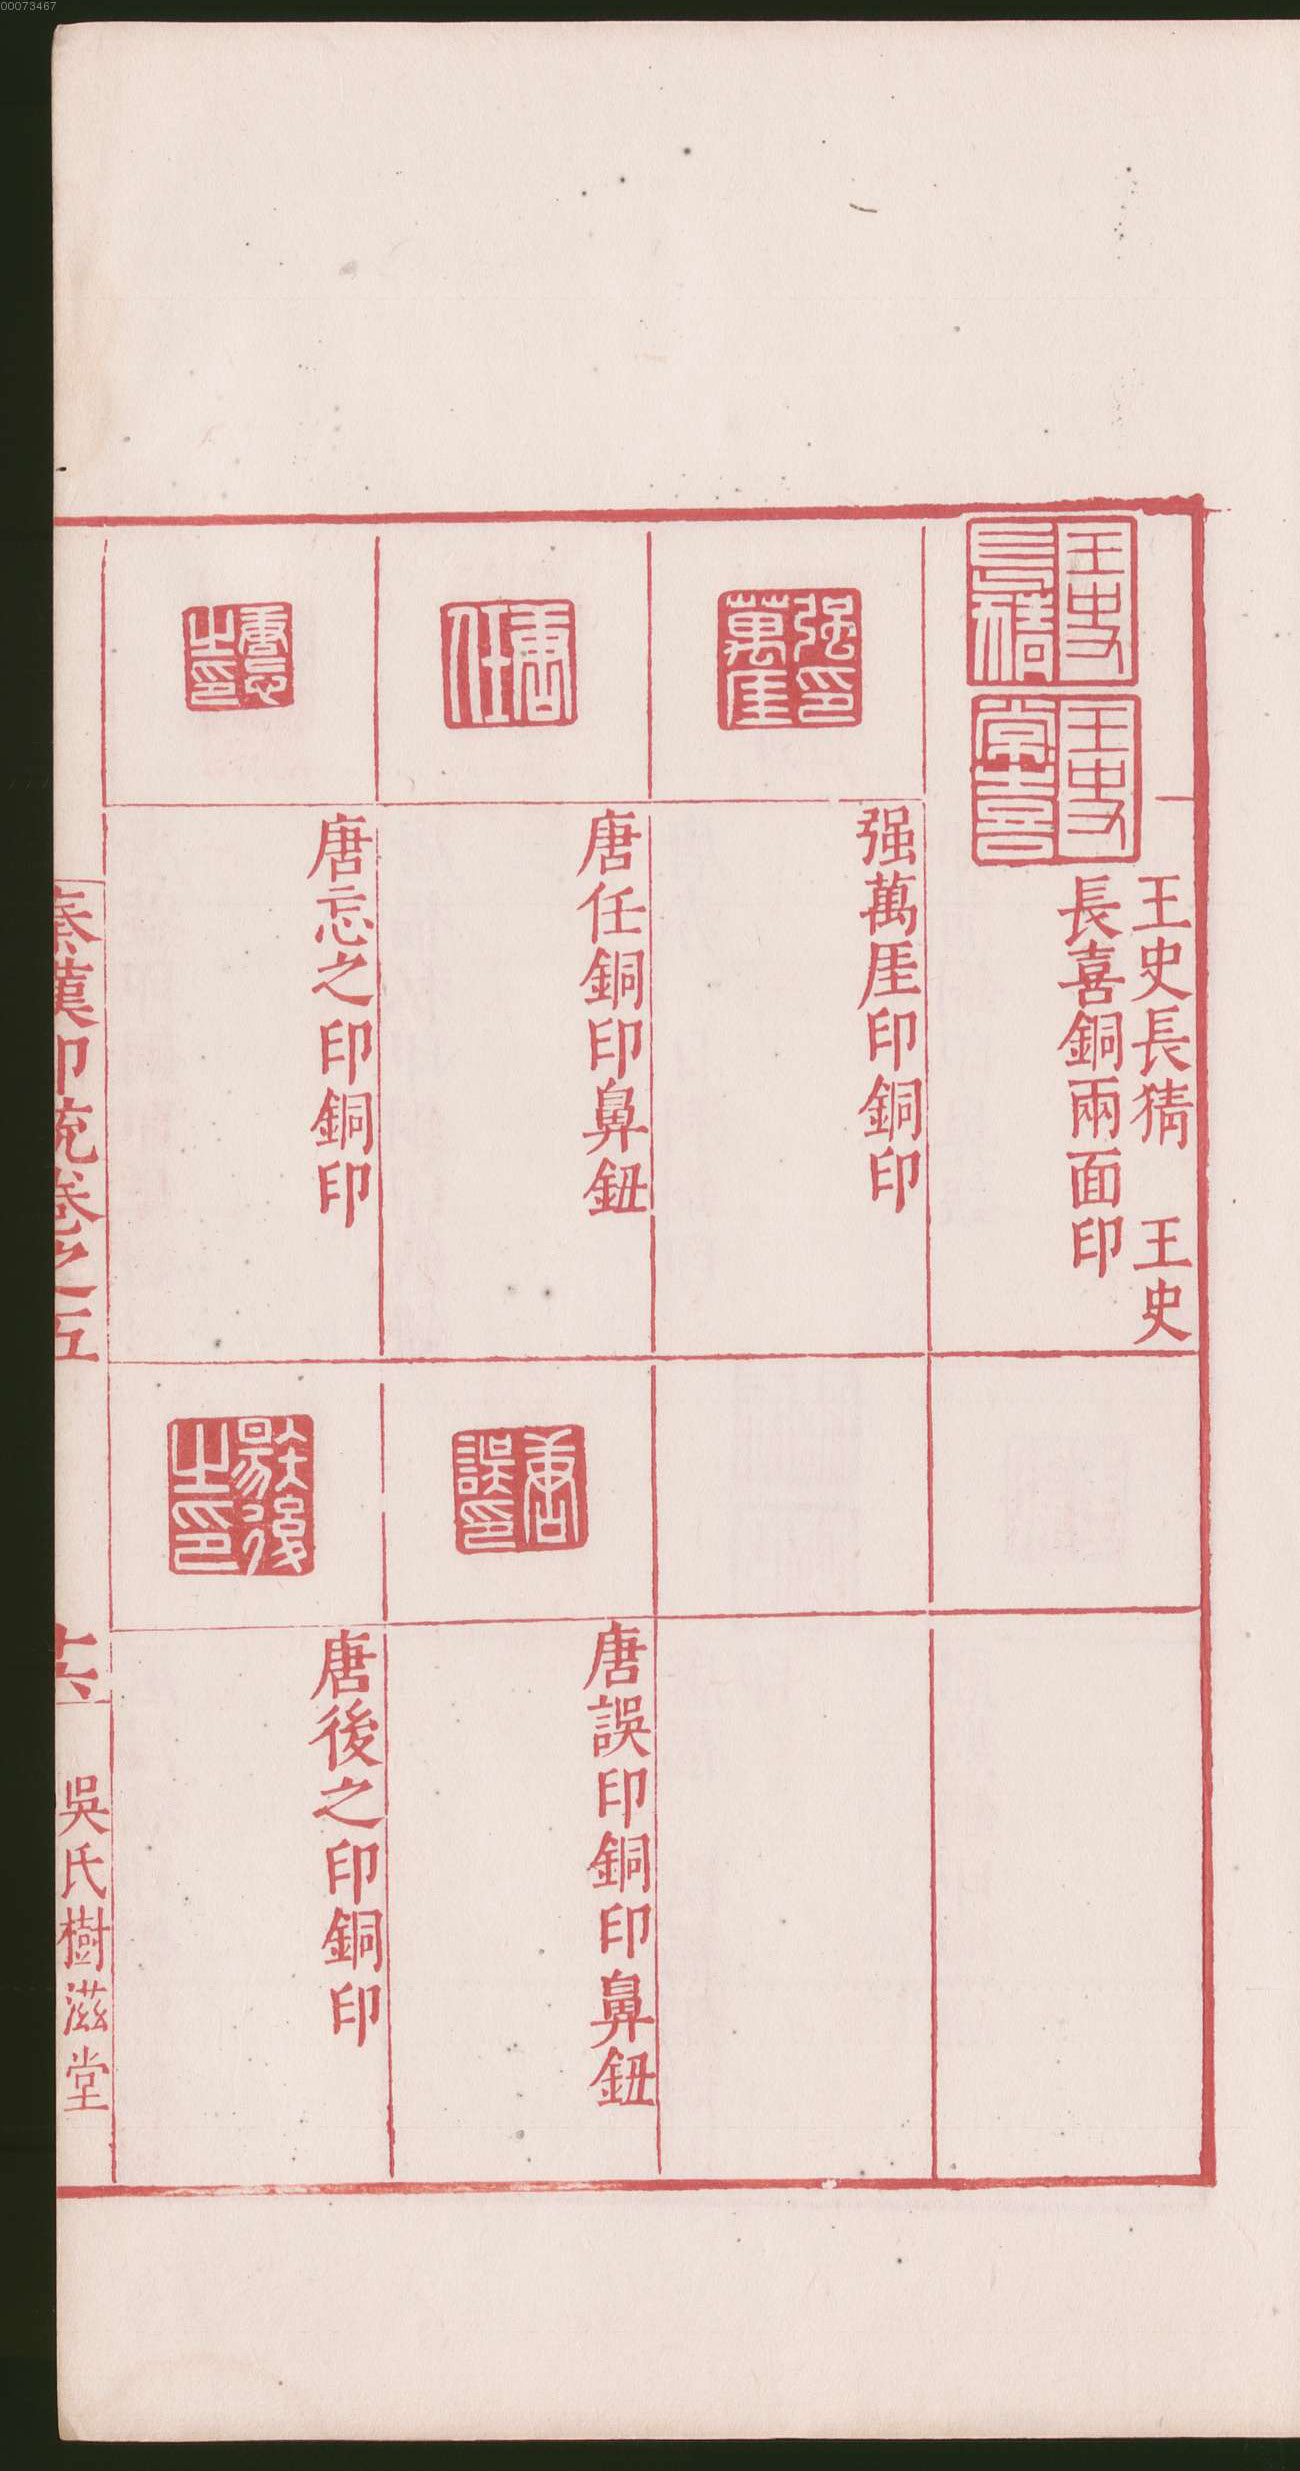 00073467
王史長猜　王史
長喜銅兩面印
强萬厓印銅印
唐任銅印鼻鈕
唐誤印銅印鼻鈕
唐忘之印銅印
唐後之印銅印
秦漢印統卷之五
十六
吳氏樹滋堂